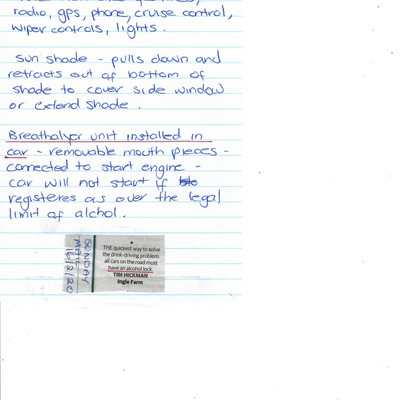 radio, gps, phone, cruise control,
wiper controls, lights.
Sun shade - pulls down and
retracts out of bottom of
shade to cover side window
or extend shade.
Breathalyer unit installed in
car - removable mouth pieces -
connected to start engine -
car will not start if
registeres as over the legal
limit of alchol.
SUNDAY
MAIL
16/2/20
THE quickest way to solve
the drink-driving problem
all cars on the road must
have an alcohol lock.
TIM HICKMAN
Ingle Farm